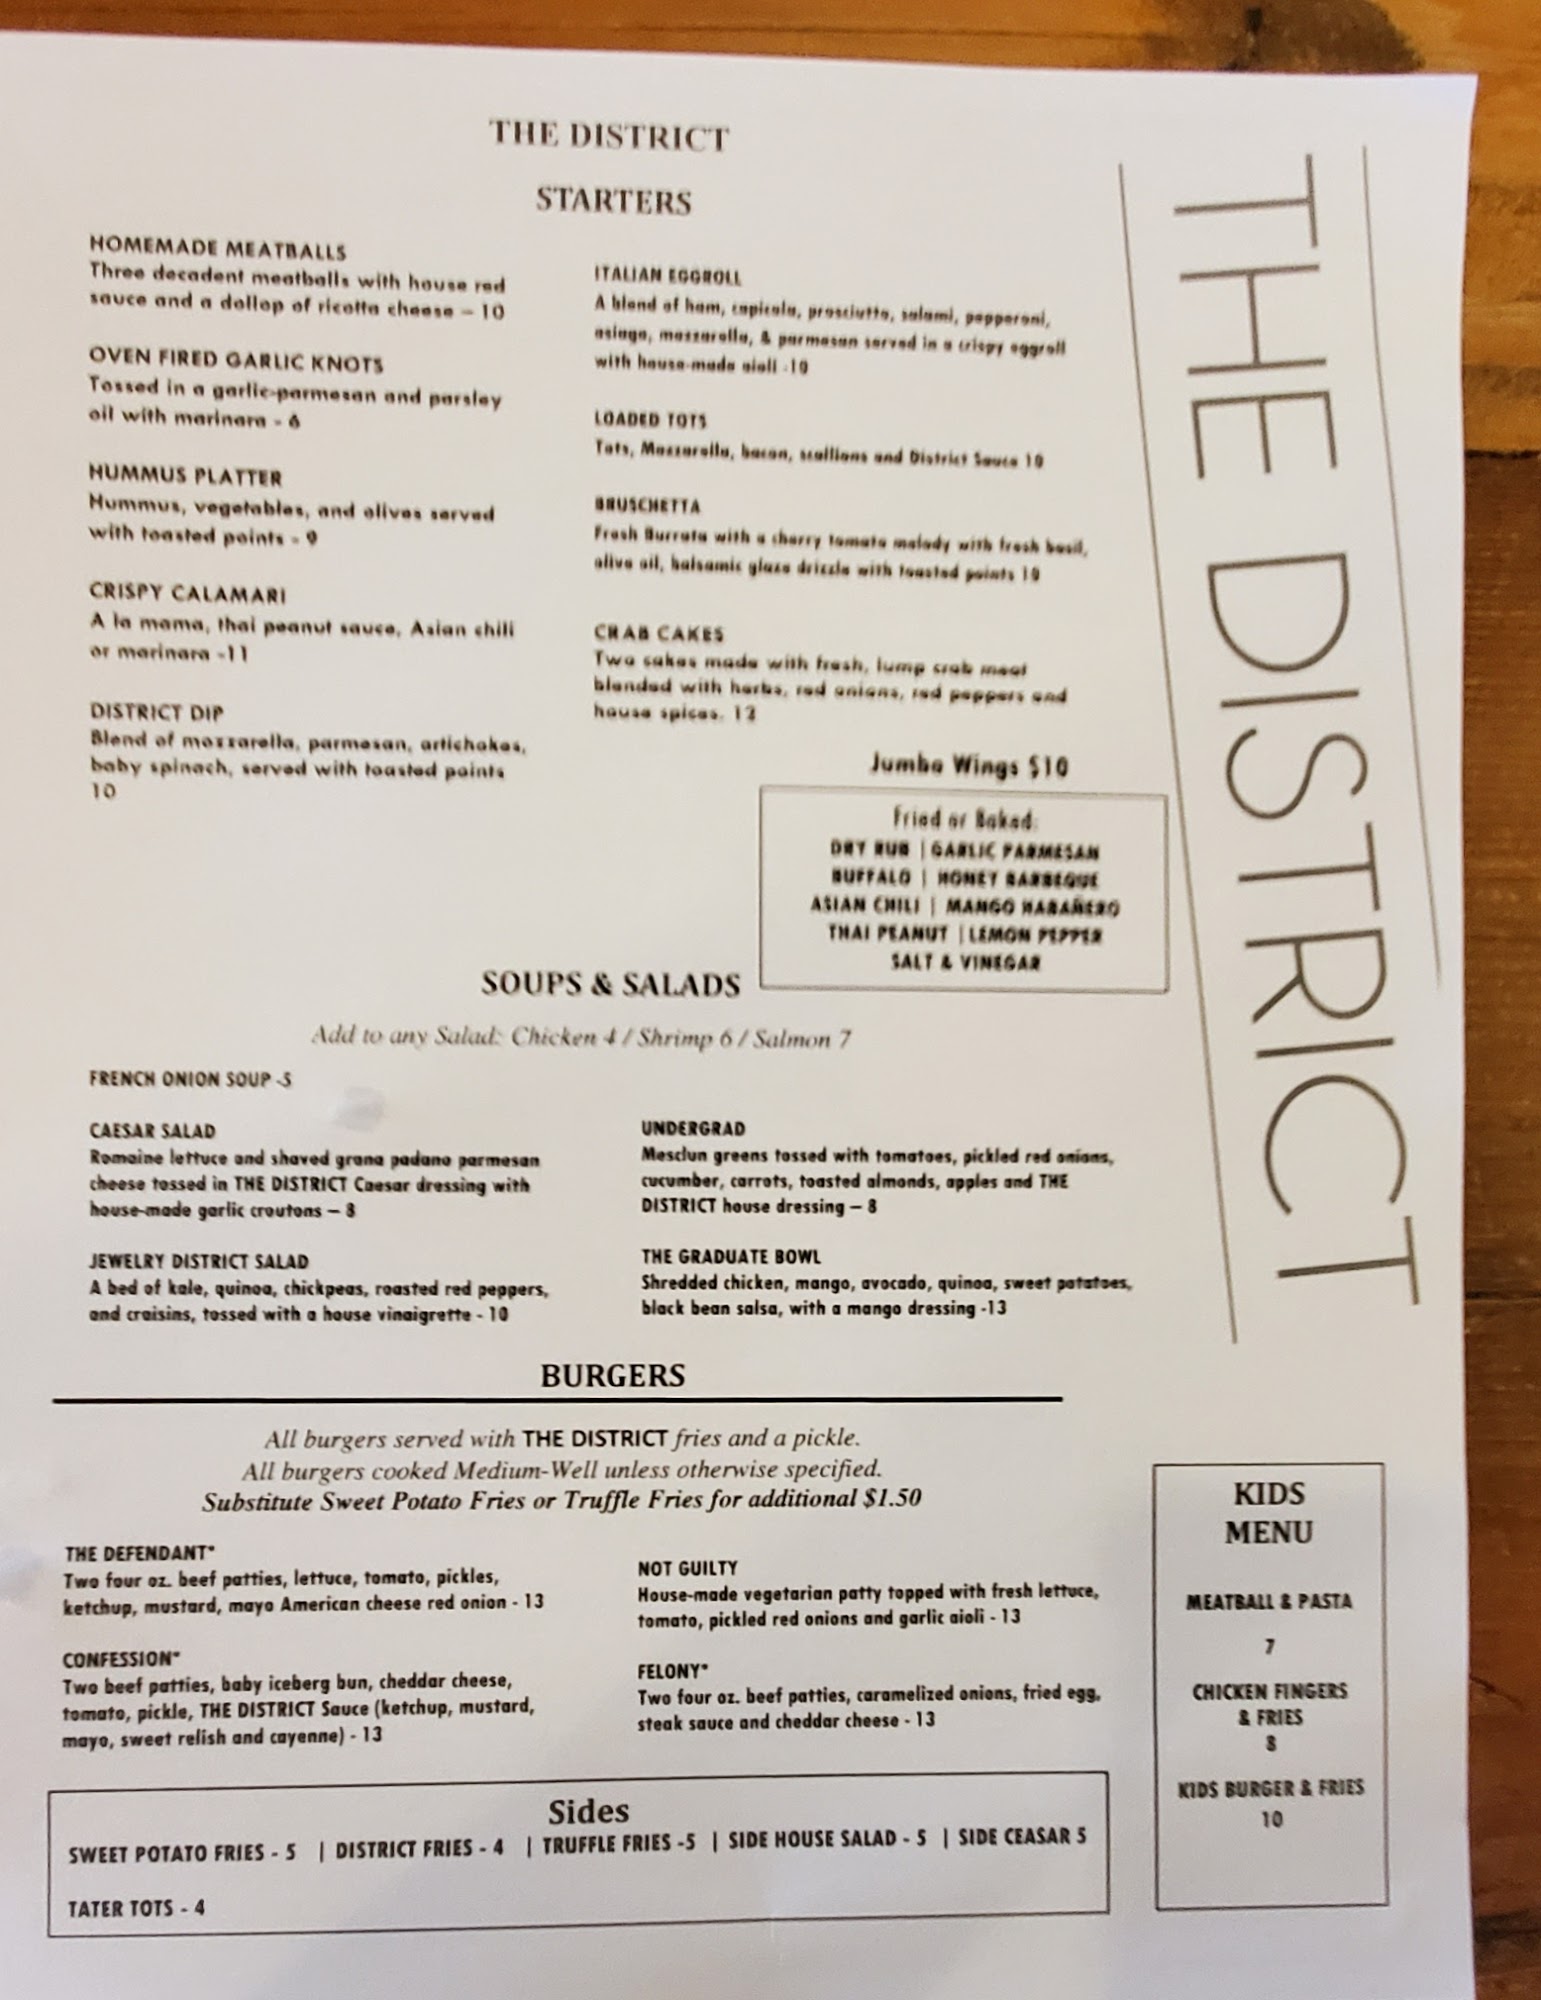 THE DISTRICT
STARTERS
HOMEMADE MEATBALLS
Three decadent meatballs with house red
sauce and a dollop of ricotta cheese – 10
OVEN FIRED GARLIC KNOTS
Tossed in a garlic-parmesan and parsley
oil with marinara - 6
HUMMUS PLATTER
Hummus, vegetables, and olives served
with toasted points - 9
CRISPY CALAMARI
A la mama, thai peanut sauce, Asian chili
or marinara -11
DISTRICT DIP
Blend of mozzarella, parmesan, artichokes,
baby spinach, served with toasted points
10
ITALIAN EGGROLL
A blend of ham, capicola, prosciutto, salami, pepperoni,
asiago, mozzarella, & parmesan served in a crispy eggroll
with house-made aioli -10
LOADED TOTS
Tots, Mozzarella, bacon, scallions and District Sauce 10
BRUSCHETTA
Fresh Burrata with a cherry tomato malady with fresh basil,
olive oil, balsamic glaze drizzle with toasted points 10
CRAB CAKES
Two cakes made with fresh, lump crab meat
blended with herbs, red onions, red peppers and
house spices. 12
Jumbo Wings $10
Fried or Baked:
DRY RUB | GARLIC PARMESAN
BUFFALO | HONEY BARBEQUE
ASIAN CHILI | MANGO HABAÑERO
THAI PEANUT | LEMON PEPPER
SALT & VINEGAR
THE DISTRICT
SOUPS & SALADS
Add to any Salad: Chicken 4 / Shrimp 6 / Salmon 7
FRENCH ONION SOUP -5
CAESAR SALAD
Romaine lettuce and shaved grana padano parmesan
cheese tossed in THE DISTRICT Caesar dressing with
house-made garlic croutons – 8
JEWELRY DISTRICT SALAD
A bed of kale, quinoa, chickpeas, roasted red peppers,
and craisins, tossed with a house vinaigrette - 10
UNDERGRAD
Mesclun greens tossed with tomatoes, pickled red onions,
cucumber, carrots, toasted almonds, apples and THE
DISTRICT house dressing – 8
THE GRADUATE BOWL
Shredded chicken, mango, avocado, quinoa, sweet potatoes,
black bean salsa, with a mango dressing -13
BURGERS
All burgers served with THE DISTRICT fries and a pickle.
All burgers cooked Medium-Well unless otherwise specified.
Substitute Sweet Potato Fries or Truffle Fries for additional $1.50
THE DEFENDANT*
Two four oz. beef patties, lettuce, tomato, pickles,
ketchup, mustard, mayo American cheese red onion - 13
CONFESSION*
Two beef patties, baby iceberg bun, cheddar cheese,
tomato, pickle, THE DISTRICT Sauce (ketchup, mustard,
mayo, sweet relish and cayenne) - 13
NOT GUILTY
House-made vegetarian patty topped with fresh lettuce,
tomato, pickled red onions and garlic aioli - 13
FELONY*
Two four oz. beef patties, caramelized onions, fried egg,
steak sauce and cheddar cheese - 13
KIDS
MENU
MEATBALL & PASTA
7
CHICKEN FINGERS
& FRIES
8
KIDS BURGER & FRIES
10
Sides
SWEET POTATO FRIES - 5 | DISTRICT FRIES - 4 | TRUFFLE FRIES -5 | SIDE HOUSE SALAD - 5 | SIDE CEASAR 5
TATER TOTS - 4